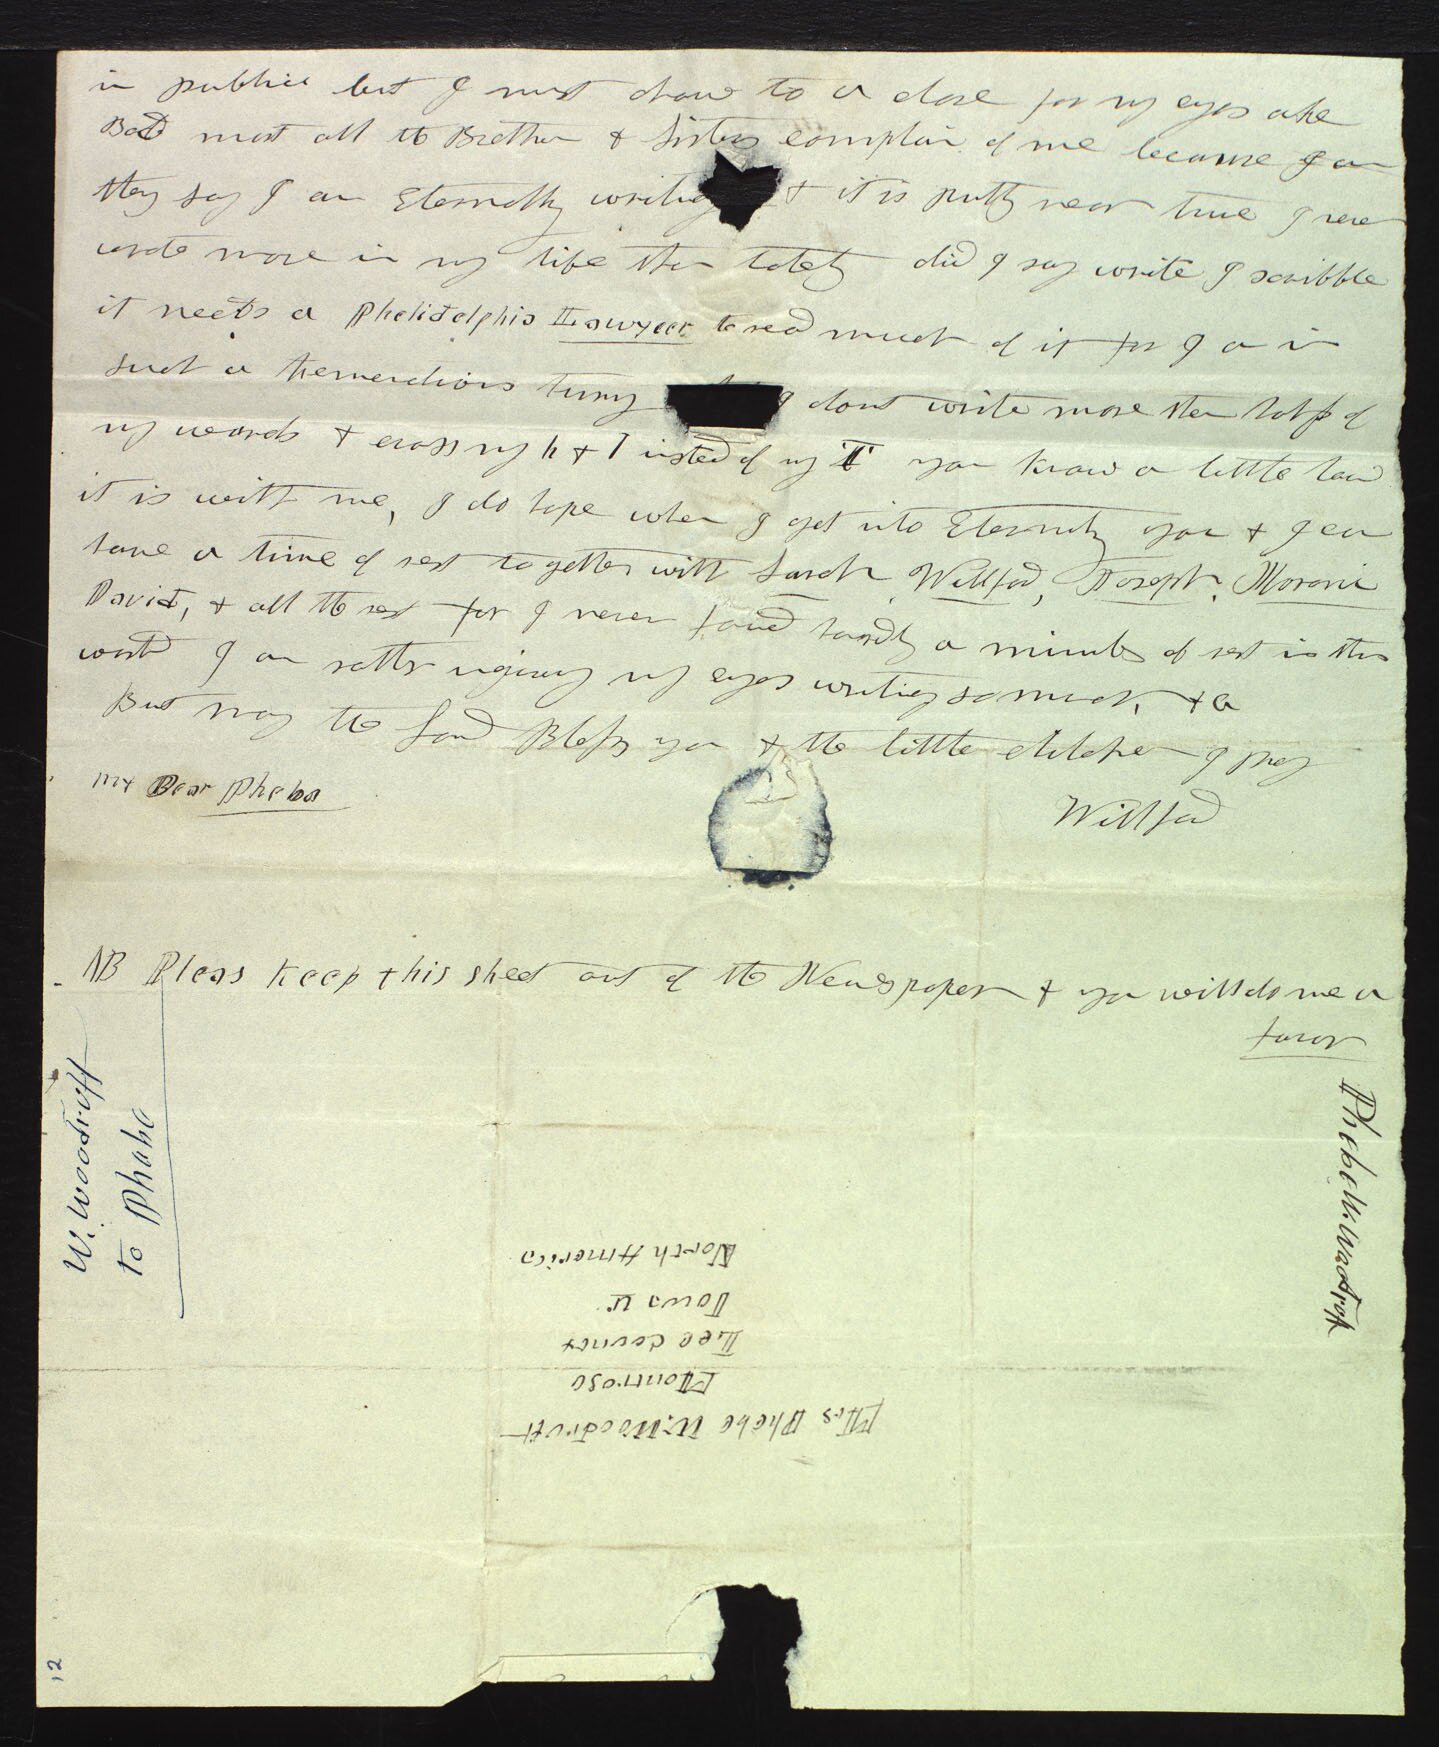 in public but I must draw to a close for my eyes ake
Bad most all the Brethen & Sisters complain of me because
they say I am Eternally writing & it is putty near true I never
wrote more in my life than lately did I say write I scribble
it needs a Pheliidelphia Lawyeer to read much of it for I am in
such a tremendious hurry I dont write more then half of
my words & cross my h & l insted of my T you know a little how
it is with me, I do hope when I get into Eternity you & I can
have a time of rest together with Sarah, Willford, Joseph, Moroni
David, & all the rest for I never found hardly a minute of rest in this
world I am rather injuring my eyes writing so much, & a
But may the Lord Bless you & the little children I pray
My Dear Pheba
Willford
NB Pleas Keep this sheet out of the Newspaper & you will do me a
favor
W. Woodruff
to Phebe
Phebe W. Woodruff
Mrs Phebe W. Woodruff
Montrose
Lee County
Iowa T.
North America
12